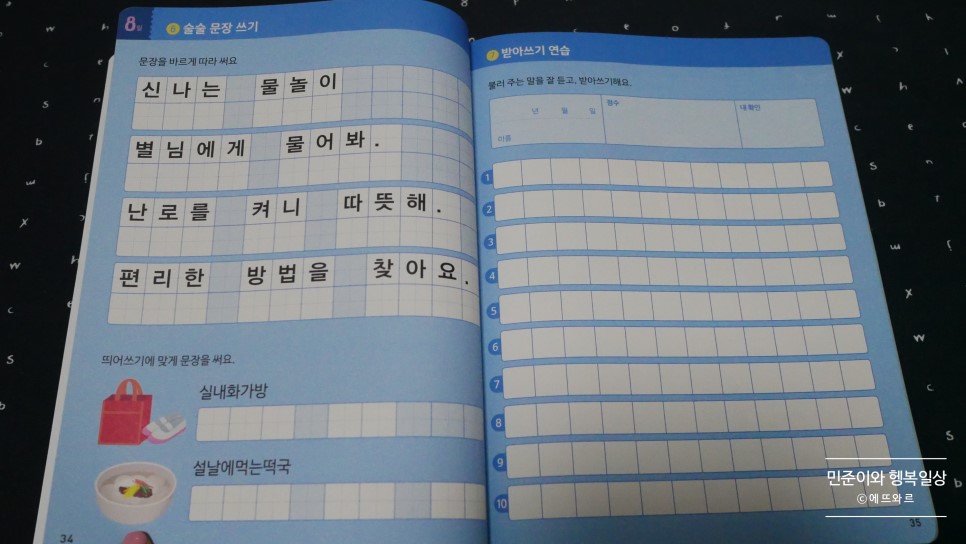 8일
6 술술 문장 쓰기
문장을 바르게 따라 써요
신나는 물놀이
별님에게 물어봐.
난로를 켜니 따뜻해.
편리한 방법을 찾아요.
띄어쓰기에 맞게 문장을 써요.
실내화가방
설날에먹는떡국
34
7 받아쓰기 연습
불러 주는 말을 잘 듣고, 받아쓰기해요.
년 월 일 점수 내 확인
이름
1
2
3
4
5
6
7
8
9
10
35
민준이와 행복일상
ⓒ에뜨와르